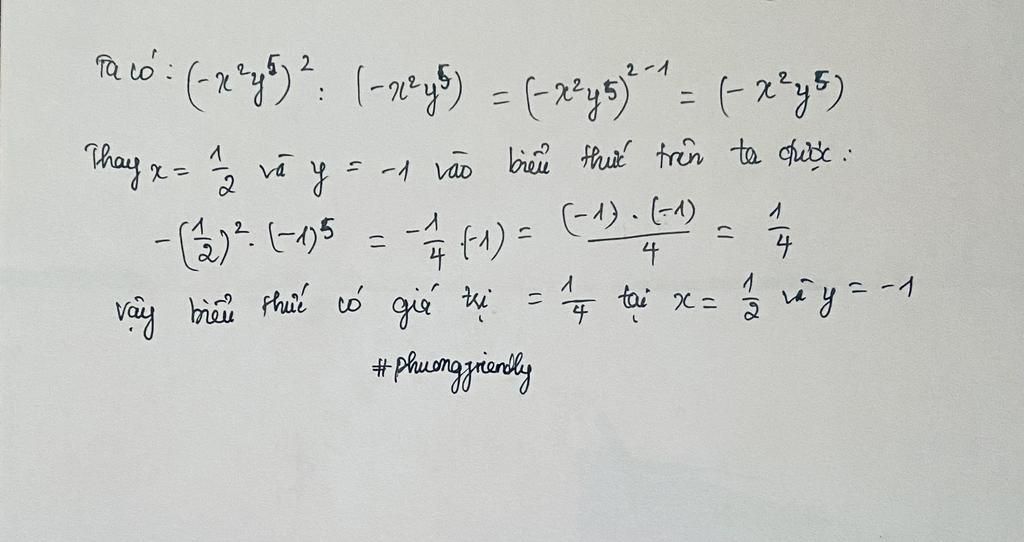 Ta có: (-x²y⁵)² : (-x²y⁵) = (-x²y⁵)²⁻¹ = (-x²y⁵)
Thay x = 1/2 và y = -1 vào biểu thức trên ta được:
-(1/2)². (-1)⁵ = -1/4 .(-1) = (-1).(-1)/4 = 1/4
Vậy biểu thức có giá trị = 1/4 tại x = 1/2 và y = -1
#phuongfriendly